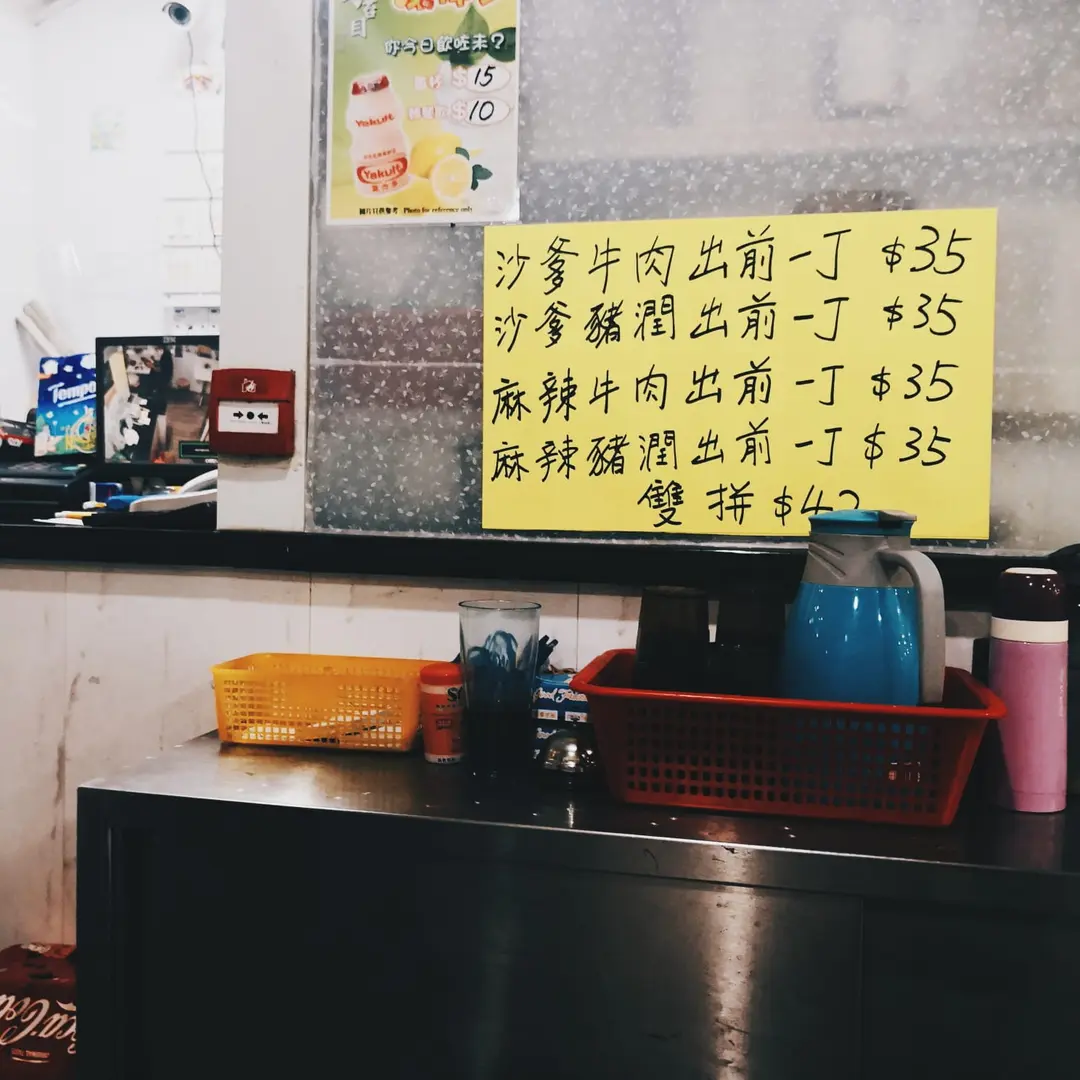 你今日飲咗未?
$15
$10
Yakult
Yakult
圖片只供參考 Photo for reference only
沙爹牛肉出前一丁 $35
沙爹豬潤出前一丁 $35
麻辣牛肉出前一丁 $35
麻辣豬潤出前一丁 $35
雙拼 $42
Tempo
IBM